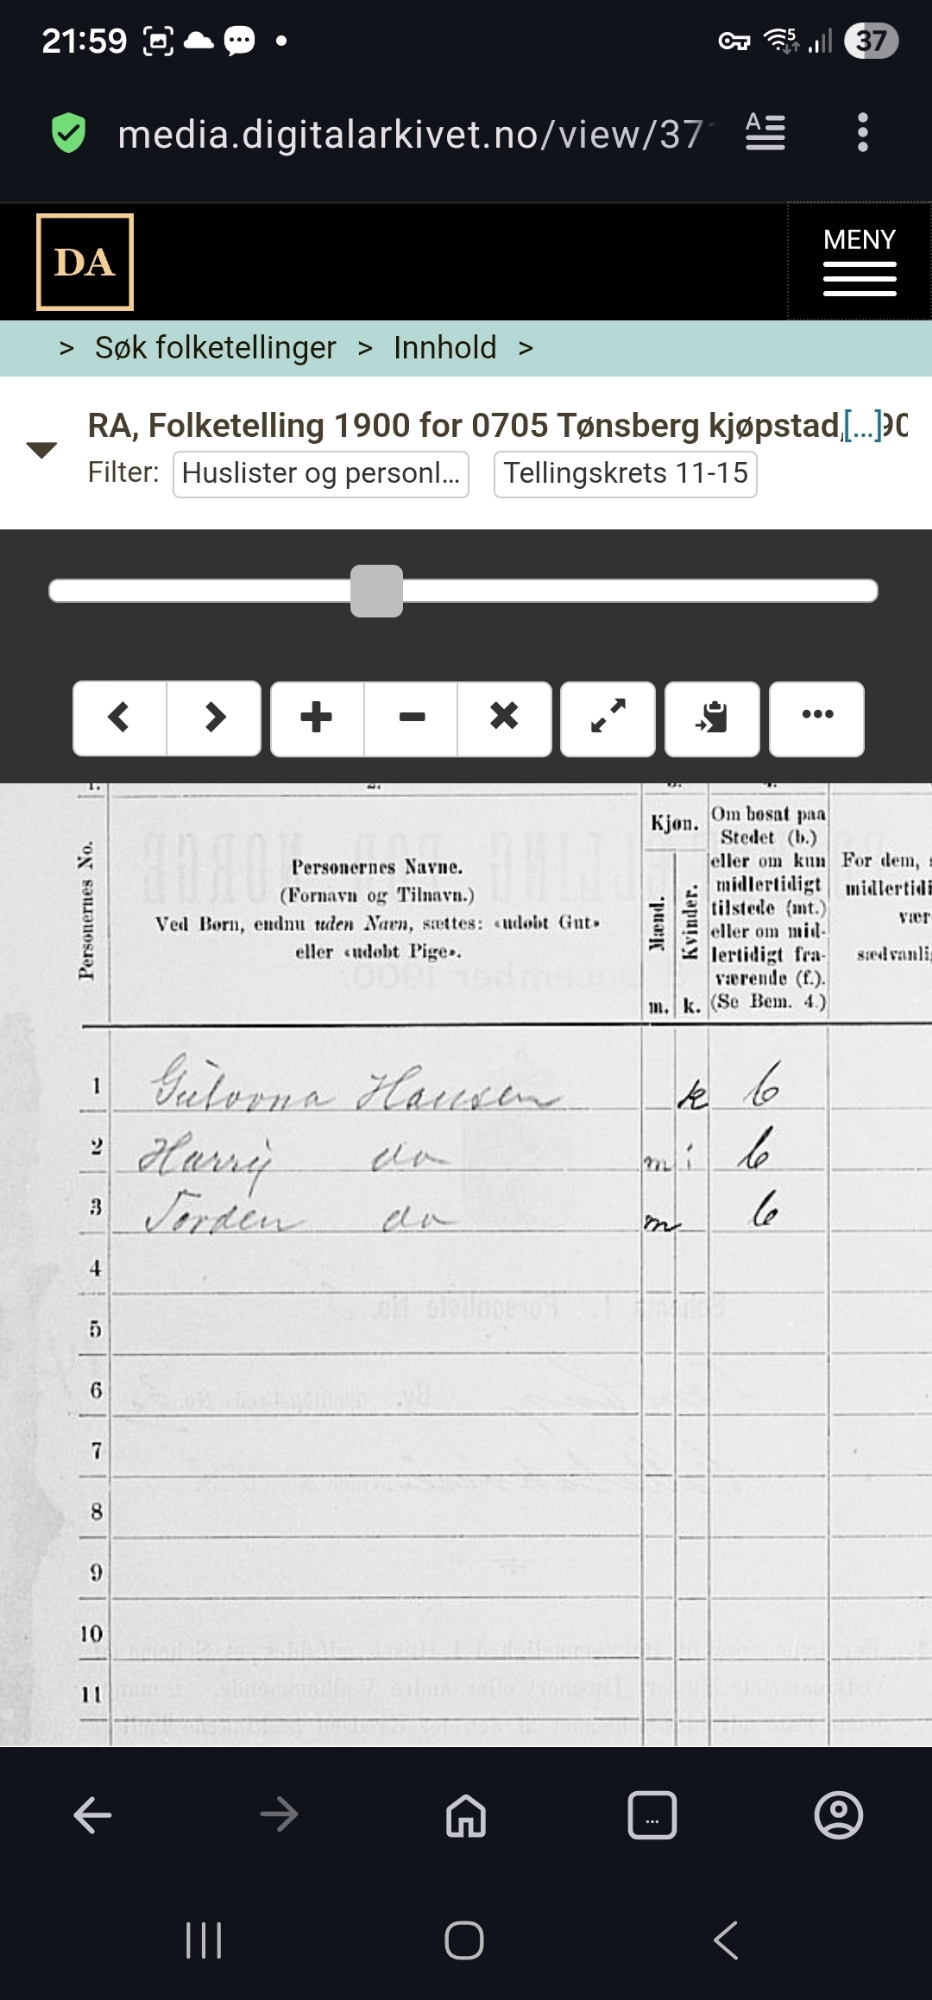 21:59
37
media.digitalarkivet.no/view/37
DA
MENY
> Søk folketellinger > Innhold >
RA, Folketelling 1900 for 0705 Tønsberg kjøpstad, [...]90
Filter: Huslister og personl... Tellingskrets 11-15
Personernes No.
Personernes Navne.
(Fornavn og Tilnavn.)
Ved Børn, endnu uden Navn, sættes: «udøbt Gut»
eller «udøbt Pige».
Kjøn.
Mænd.
Kvinder.
m. k.
Om bosat paa
Stedet (b.)
eller om kun
midlertidigt
tilstede (mt.)
eller om mid-
lertidigt fra-
værende (f.).
(Se Bem. 4.)
For dem,
midlertidi
vær
sædvanli
1 Hansen k b
2 Harry do m b
3 do m b
4
5
6
7
8
9
10
11